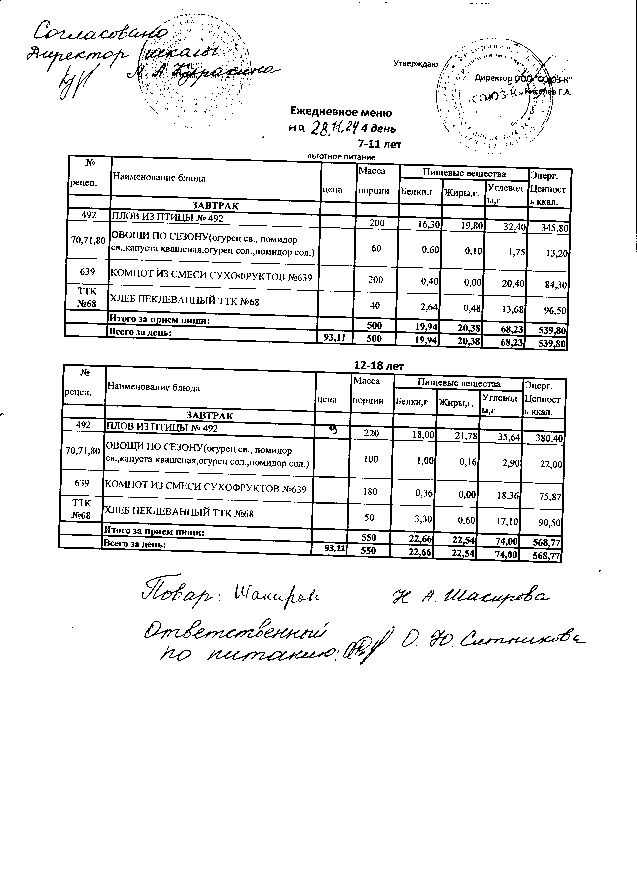 Согласовано
Директор школы
М. А. Куракина
Утверждаю
Директор ООО "СОЮЗ-К"
"СОЮЗ-К"
Г.А.
Ежедневное меню
на 28.11.24 4 день
7-11 лет
льготное питание
№ рецеп. Наименование блюда цена Масса порции Пищевые вещества Энерг. Ценность ккал.
Белки,г Жиры,г. Углеводы,г
ЗАВТРАК
492 ПЛОВ ИЗ ПТИЦЫ № 492 200 16,30 19,80 32,40 345,80
70,71,80 ОВОЩИ ПО СЕЗОНУ(огурец св., помидор
св.,капуста квашеная,огурец сол.,помидор сол.) 60 0,60 0,10 1,75 13,20
639 КОМПОТ ИЗ СМЕСИ СУХОФРУКТОВ №639 200 0,40 0,00 20,40 84,30
ТТК №68 ХЛЕБ ПЕКЛЕВАННЫЙ ТТК №68 40 2,64 0,48 13,68 96,50
Итого за прием пищи: 500 19,94 20,38 68,23 539,80
Всего за день: 93,11 500 19,94 20,38 68,23 539,80
12-18 лет
№ рецеп. Наименование блюда цена Масса порции Пищевые вещества Энерг. Ценность ккал.
Белки,г Жиры,г. Углеводы,г
ЗАВТРАК
492 ПЛОВ ИЗ ПТИЦЫ № 492 220 18,00 21,78 35,64 380,40
70,71,80 ОВОЩИ ПО СЕЗОНУ(огурец св., помидор
св.,капуста квашеная,огурец сол.,помидор сол.) 100 1,00 0,16 2,90 22,00
639 КОМПОТ ИЗ СМЕСИ СУХОФРУКТОВ №639 180 0,36 0,00 18,36 75,87
ТТК №68 ХЛЕБ ПЕКЛЕВАННЫЙ ТТК №68 50 3,30 0,60 17,10 90,50
Итого за прием пищи: 550 22,66 22,54 74,00 568,77
Всего за день: 93,11 550 22,66 22,54 74,00 568,77
Повар: Шакиров Н А. Шакирова
Ответственной
по питанию: О. Ю. Ситникова